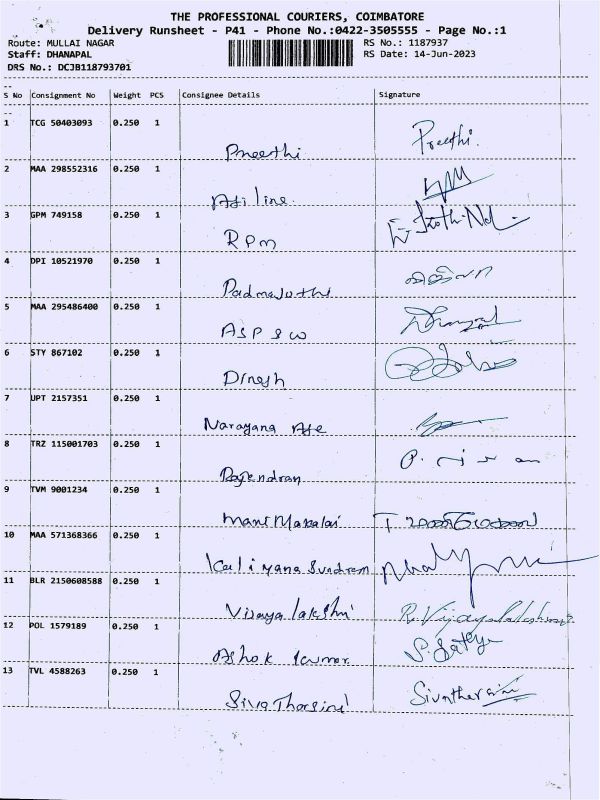 THE PROFESSIONAL COURIERS, COIMBATORE
Delivery Runsheet - P41 - Phone No.:0422-3505555 - Page No.:1
Route: MULLAI NAGAR RS No.: 1187937
Staff: DHANAPAL RS Date: 14-Jun-2023
DRS No.: DCJB118793701
S No Consignment No Weight PCS Consignee Details Signature
1 TCG 50403093 0.250 1
Preethi Preethi.
2 MAA 298552316 0.250 1
3 GPM 749158 0.250 1
RPM
4 DPI 10521970 0.250 1
PadmaJothi
5 MAA 295486400 0.250 1
6 STY 867102 0.250 1
Dinesh
7 UPT 2157351 0.250 1
Narayana
8 TRZ 115001703 0.250 1
Rajendran
9 TVM 9001234 0.250 1
Mani Makalai
10 MAA 571368366 0.250 1
Kaliyana Sundram
11 BLR 2150608588 0.250 1
Vijayalakshmi R. Vijayalakshmi
12 POL 1579189 0.250 1
Ashok kumar S. Sathya
13 TVL 4588263 0.250 1
Siva Tharsini